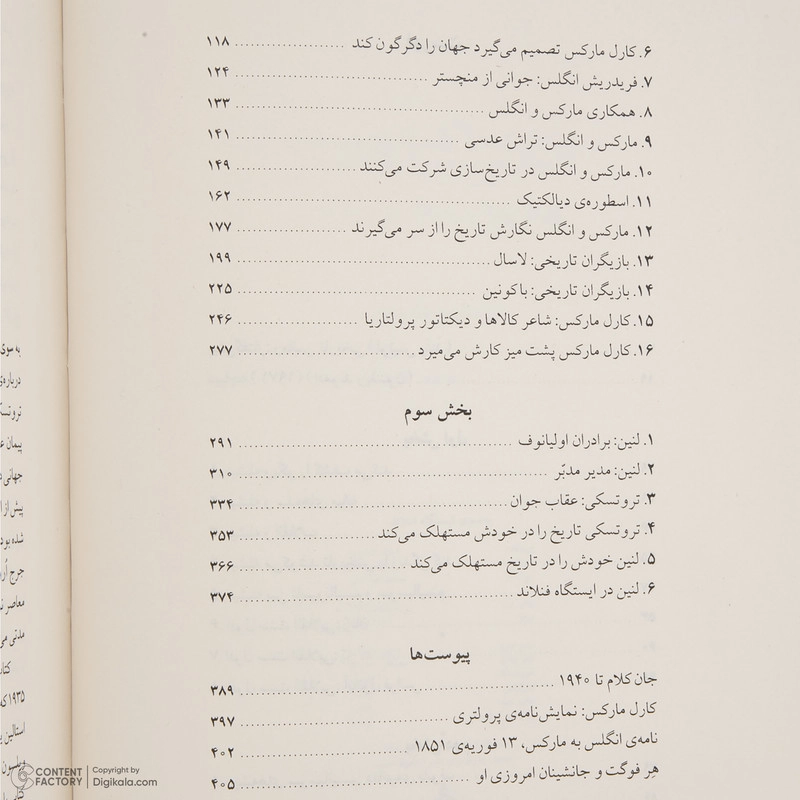 ۶. کارل مارکس تصمیم می‌گیرد جهان را دگرگون کند ۱۱۸
۷. فریدریش انگلس: جوانی از منچستر ۱۲۴
۸. همکاری مارکس و انگلس ۱۳۳
۹. مارکس و انگلس: تراش عدسی ۱۴۱
۱۰. مارکس و انگلس در تاریخ‌سازی شرکت می‌کنند ۱۴۹
۱۱. اسطوره‌ی دیالکتیک ۱۶۲
۱۲. مارکس و انگلس نگارش تاریخ را از سر می‌گیرند ۱۷۷
۱۳. بازیگران تاریخی: لاسال ۱۹۹
۱۴. بازیگران تاریخی: باکونین ۲۲۵
۱۵. کارل مارکس: شاعر کالاها و دیکتاتور پرولتاریا ۲۴۶
۱۶. کارل مارکس پشت میز کارش می‌میرد ۲۷۷
بخش سوم
۱. لنین: برادران اولیانوف ۲۹۱
۲. لنین: مدیر مدبّر ۳۱۰
۳. تروتسکی: عقاب جوان ۳۳۴
۴. تروتسکی تاریخ را در خودش مستهلک می‌کند ۳۵۳
۵. لنین خودش را در تاریخ مستهلک می‌کند ۳۶۶
۶. لنین در ایستگاه فنلاند ۳۷۴
پیوست‌ها
جان کلام تا ۱۹۴۰ ۳۸۹
کارل مارکس: نمایش‌نامه‌ی پرولتری ۳۹۷
نامه‌ی انگلس به مارکس، ۱۳ فوریه‌ی ۱۸۵۱ ۴۰۲
هِر فوگت و جانشینان امروزی او ۴۰۵
به سوی
درباره‌ی
پیمان
جهانی
پیش از
شده بود
جرج
معاصر
مدتی
۱۹۳۵ که
استالین
CONTENT FACTORY
Copyright by
Digikala.com